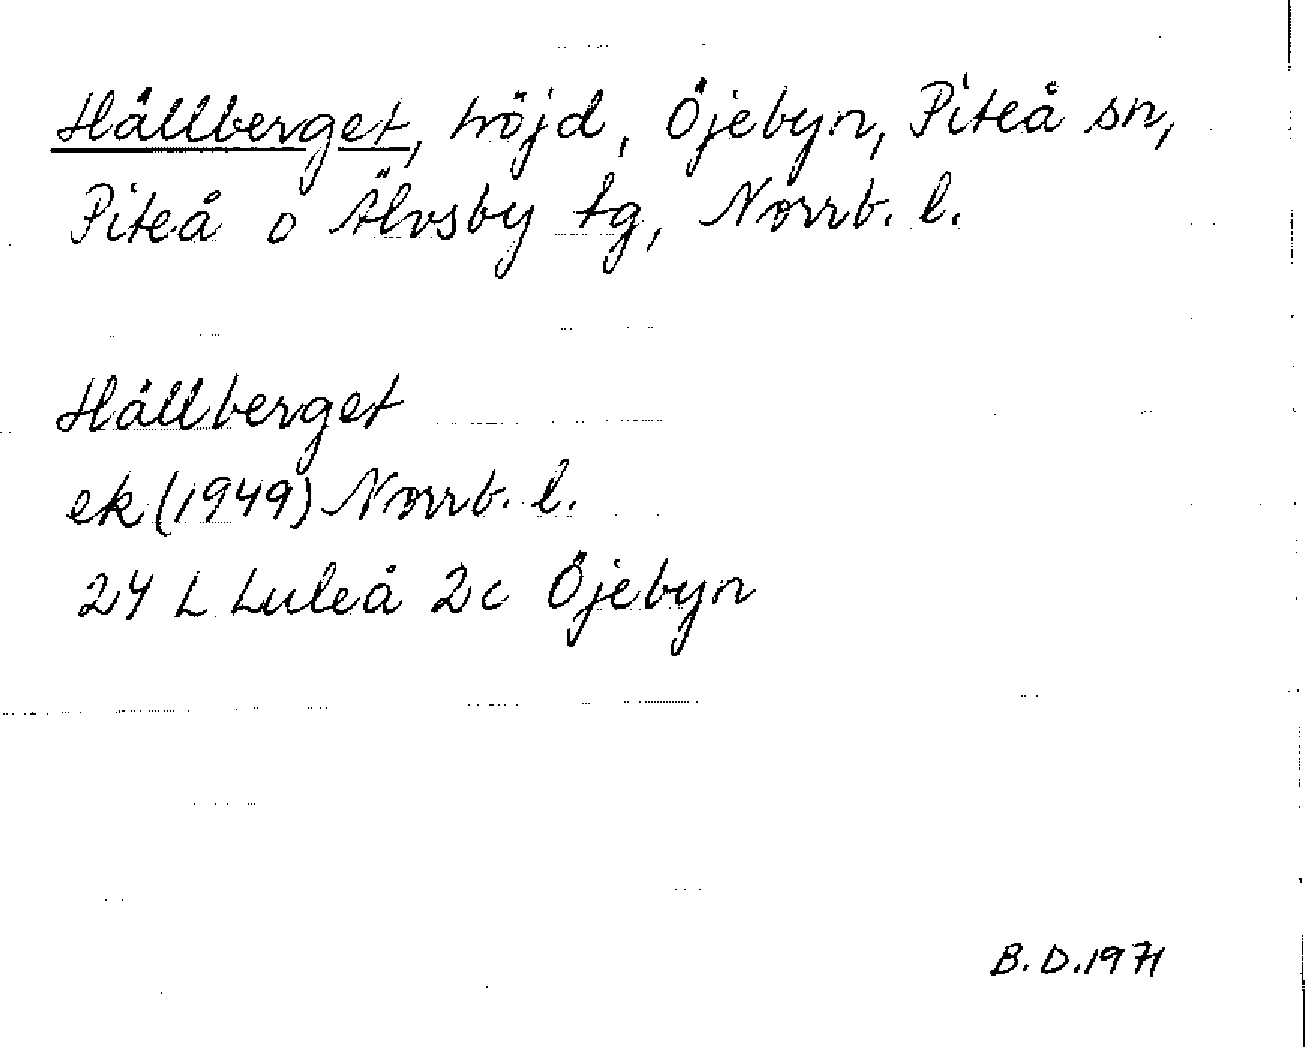 Hällberget, höjd, Öjebyn, Piteå sn,
Piteå o Älvsby tg, Norrb. l.
Hällberget
ek (1949) Norrb. l.
24 L Luleå 2c Öjebyn
B. D. 1971